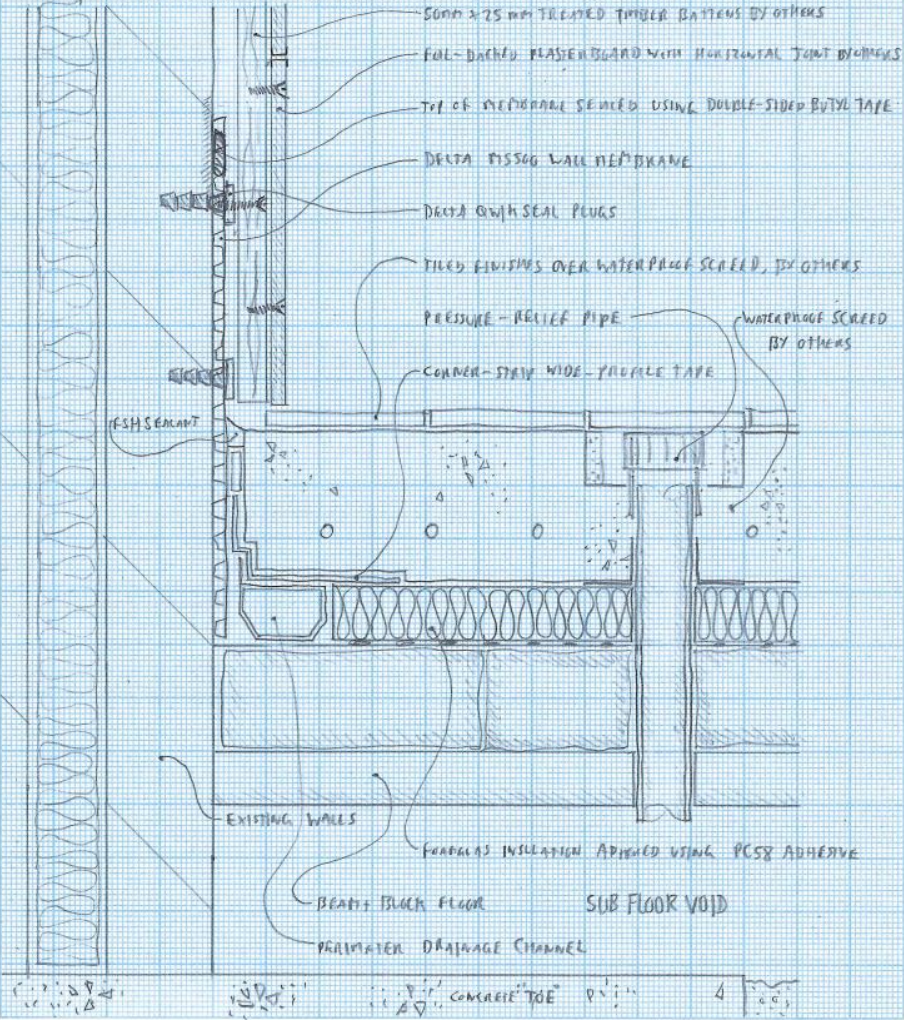 50mm x 25 mm TREATED TIMBER BATTENS BY OTHERS
FOIL-BACKED PLASTERBOARD WITH HORIZONTAL JOINT BY OTHERS
TOP OF MEMBRANE SEALED USING DOUBLE-SIDED BUTYL TAPE
DELTA MS500 WALL MEMBRANE
DELTA QWIKSEAL PLUGS
TILED FINISHES OVER WATERPROOF SCREED, BY OTHERS
PRESSURE-RELIEF PIPE
WATERPROOF SCREED
BY OTHERS
CORNER-STRIP WIDE-PROFILE TAPE
FSH SEALANT
EXISTING WALLS
FOAMGLAS INSLLATION ADHERED USING PC58 ADHESIVE
BEAM + BLOCK FLOOR
SUB FLOOR VOID
PERIMATER DRAINAGE CHANNEL
CONCRETE "TOE"